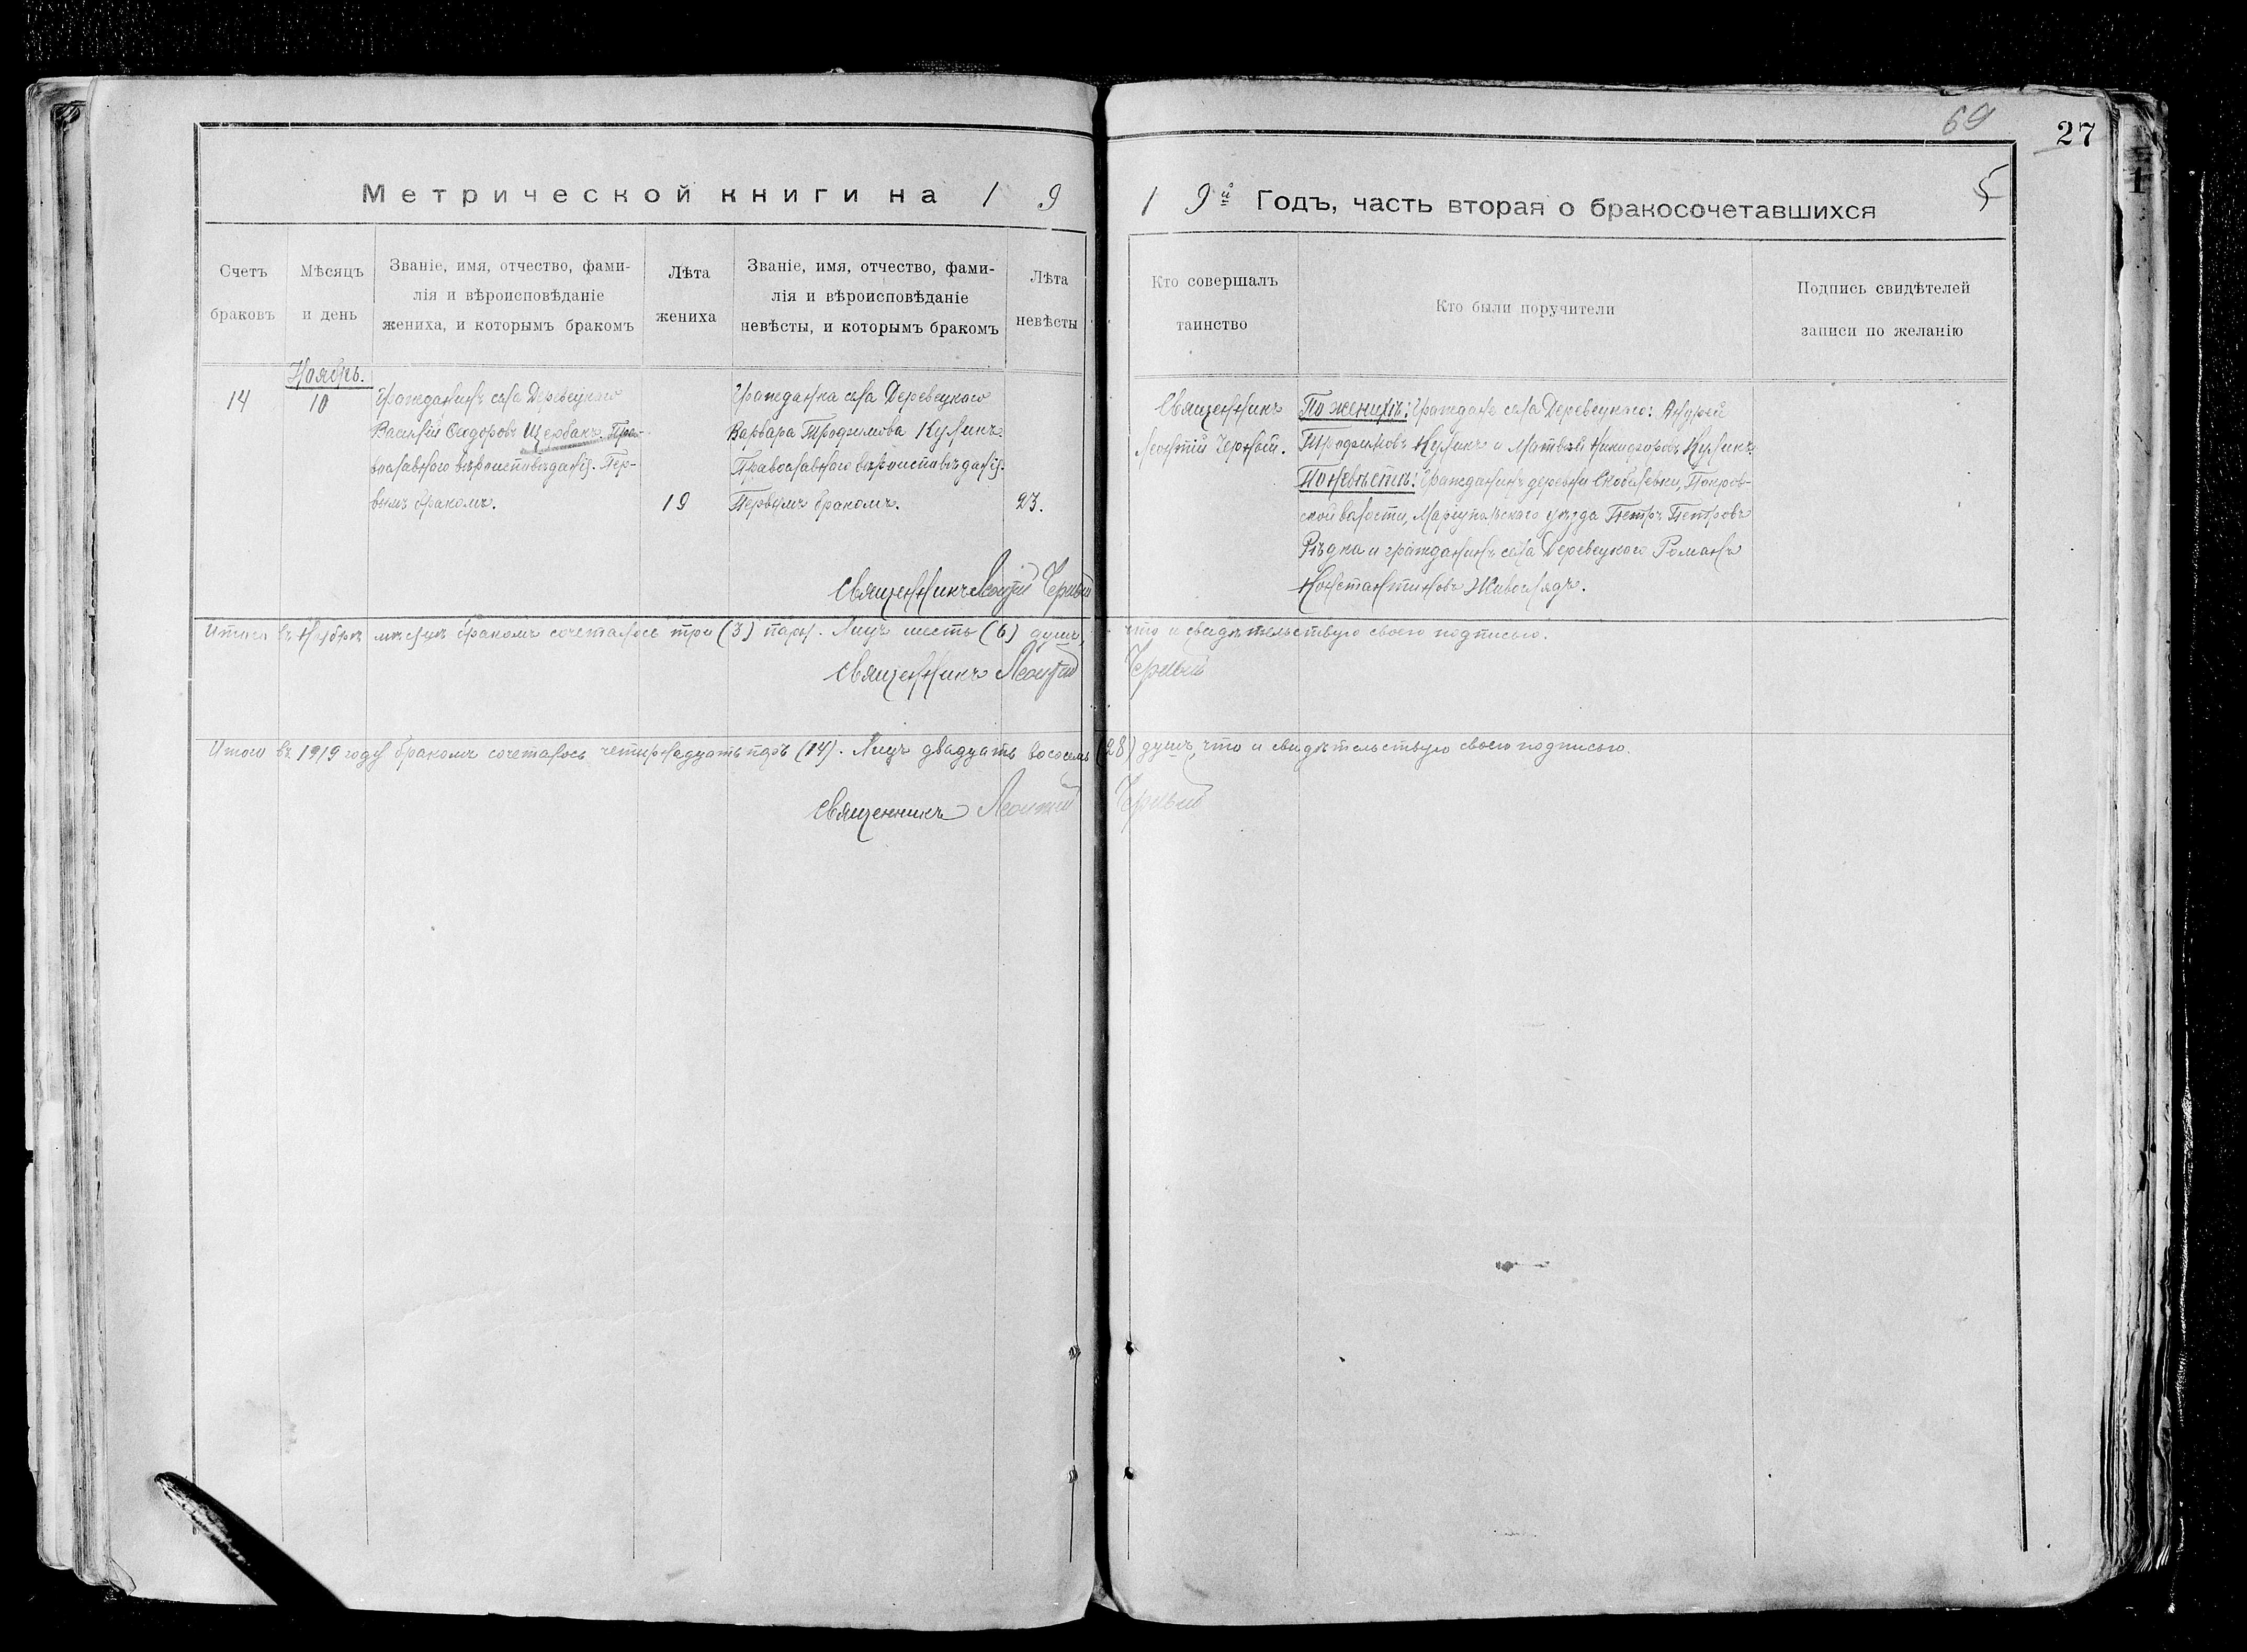 69
27
Метрической книги на 1 9
1 9й Годъ, часть вторая о бракосочетавшихся
5
Счетъ браковъ
Мѣсяцъ и день
Званіе, имя, отчество, фами-
лія и вѣроисповѣданіе
жениха, и которымъ бракомъ
Лѣта жениха
Званіе, имя, отчество, фами-
лія и вѣроисповѣданіе
невѣсты, и которымъ бракомъ
Лѣта невѣсты
Кто совершалъ таинство
Кто были поручители
Подпись свидѣтелей
записи по желанію
Ноябрь.
14
10
Гражданинъ села Деревецкаго
Василій Ѳеодоровъ Щербакъ. Пра-
вославнаго вѣроисповѣданія. Пер-
вымъ бракомъ.
19
Гражданка села Деревецкаго
Варвара Трофимова Куликъ.
Православнаго вѣроисповѣданія.
Первымъ бракомъ.
23.
Священникъ
Леонтій Черный.
По женихѣ: Граждане села Деревецкаго: Андрей
Трофимовъ Куликъ и Матвей Никифоровъ Куликъ.
По невѣстѣ: Гражданинъ деревни Скобелевки, Покров-
ской волости, Маріупольскаго уѣзда Петръ Петровъ
Рѣдка и гражданинъ села Деревецкаго Романъ
Константиновъ Живоглядъ.
Священникъ Леонтій Черный
Итого въ Ноябрѣ мѣсяцѣ бракомъ сочеталось три (3) пары. Лицъ шесть (6) душъ, что и свидѣтельствую своею подписью.
Священникъ Леонтій Черный
Итого въ 1919 году бракомъ сочеталось четырнадцать паръ (14). Лицъ двадцать восемь (28) душъ, что и свидѣтельствую своею подписью.
Священникъ Леонтій Черный